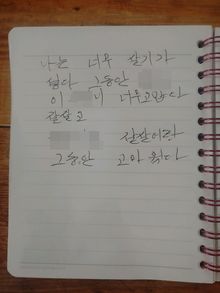 나는 너무 살기가
싫다 그동안
이 니 너무고맙다
잘살고
잘살어라
그동안 고마 웠다